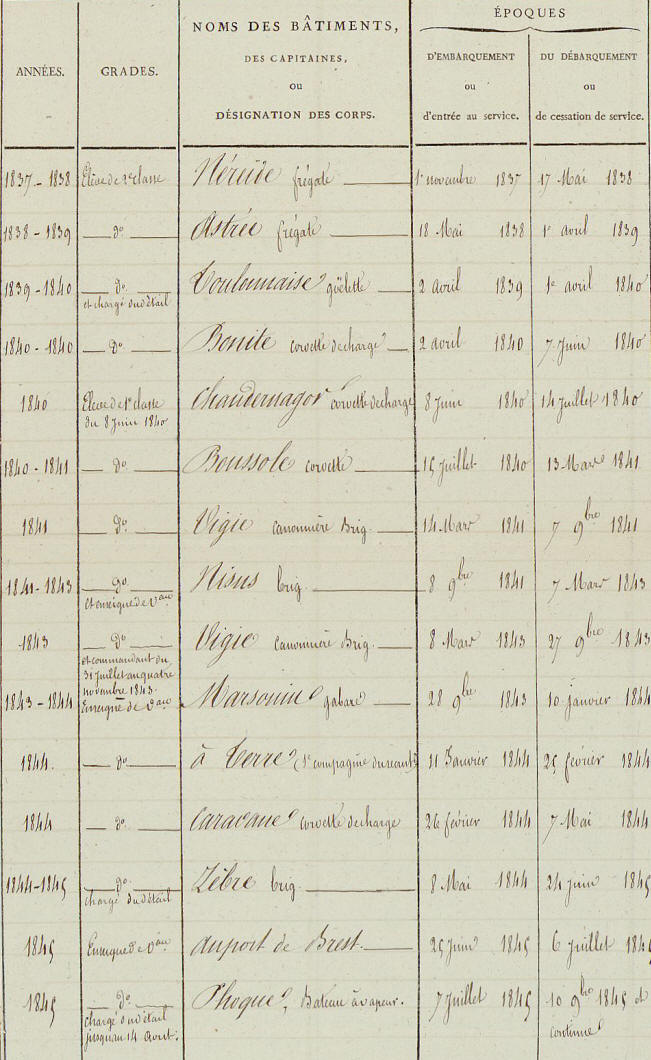 ÉPOQUES
ANNÉES. GRADES. NOMS DES BÂTIMENTS, DES CAPITAINES, ou DÉSIGNATION DES CORPS. D'EMBARQUEMENT ou d'entrée au service. DU DÉBARQUEMENT ou de cessation de service.
1837 - 1838 Élève de 2e classe Néréide frégate 1er novembre 1837 17 Mai 1838
1838 - 1839 do Astrée frégate 18 Mai 1838 1er avril 1839
1839 - 1840 do Toulonnaise goëlette 2 avril 1839 1er avril 1840
et chargé du détail
1840 - 1840 do Bonite corvette de charge 2 avril 1840 7 Juin 1840
1840 Élève de 1e classe Chandernagor corvette de charge 8 Juin 1840 14 Juillet 1840
du 8 Juin 1840
1840 - 1841 do Boussole corvette 15 Juillet 1840 13 Mars 1841
1841 do Vigie canonnière Brig 14 Mars 1841 7 9bre 1841
1841 - 1843 do Nisus brig 8 9bre 1841 7 Mars 1843
et enseigne de Vau
1843 do Vigie canonnière Brig. 8 Mars 1843 27 9bre 1843
et commandant du
31 Juillet au quatre
novembre 1843.
1843 - 1844 Enseigne de Vau Marsouin gabare 28 9bre 1843 10 janvier 1844
1844. do à Terre (1e compagnie 11 Janvier 1844 25 février 1844
1844 do Caravane corvette de charge 26 février 1844 7 Mai 1844
1844-1845 do Zèbre brig. 8 Mai 1844 24 Juin 1845
chargé du détail
1845 Enseigne de Vau au port de Brest. 25 Juin 1845 6 Juillet 1845
1845 do Phoque, Bateau à vapeur. 7 Juillet 1845 10 9bre 1845 et
chargé du détail continue
jusqu'au 14 Avril.